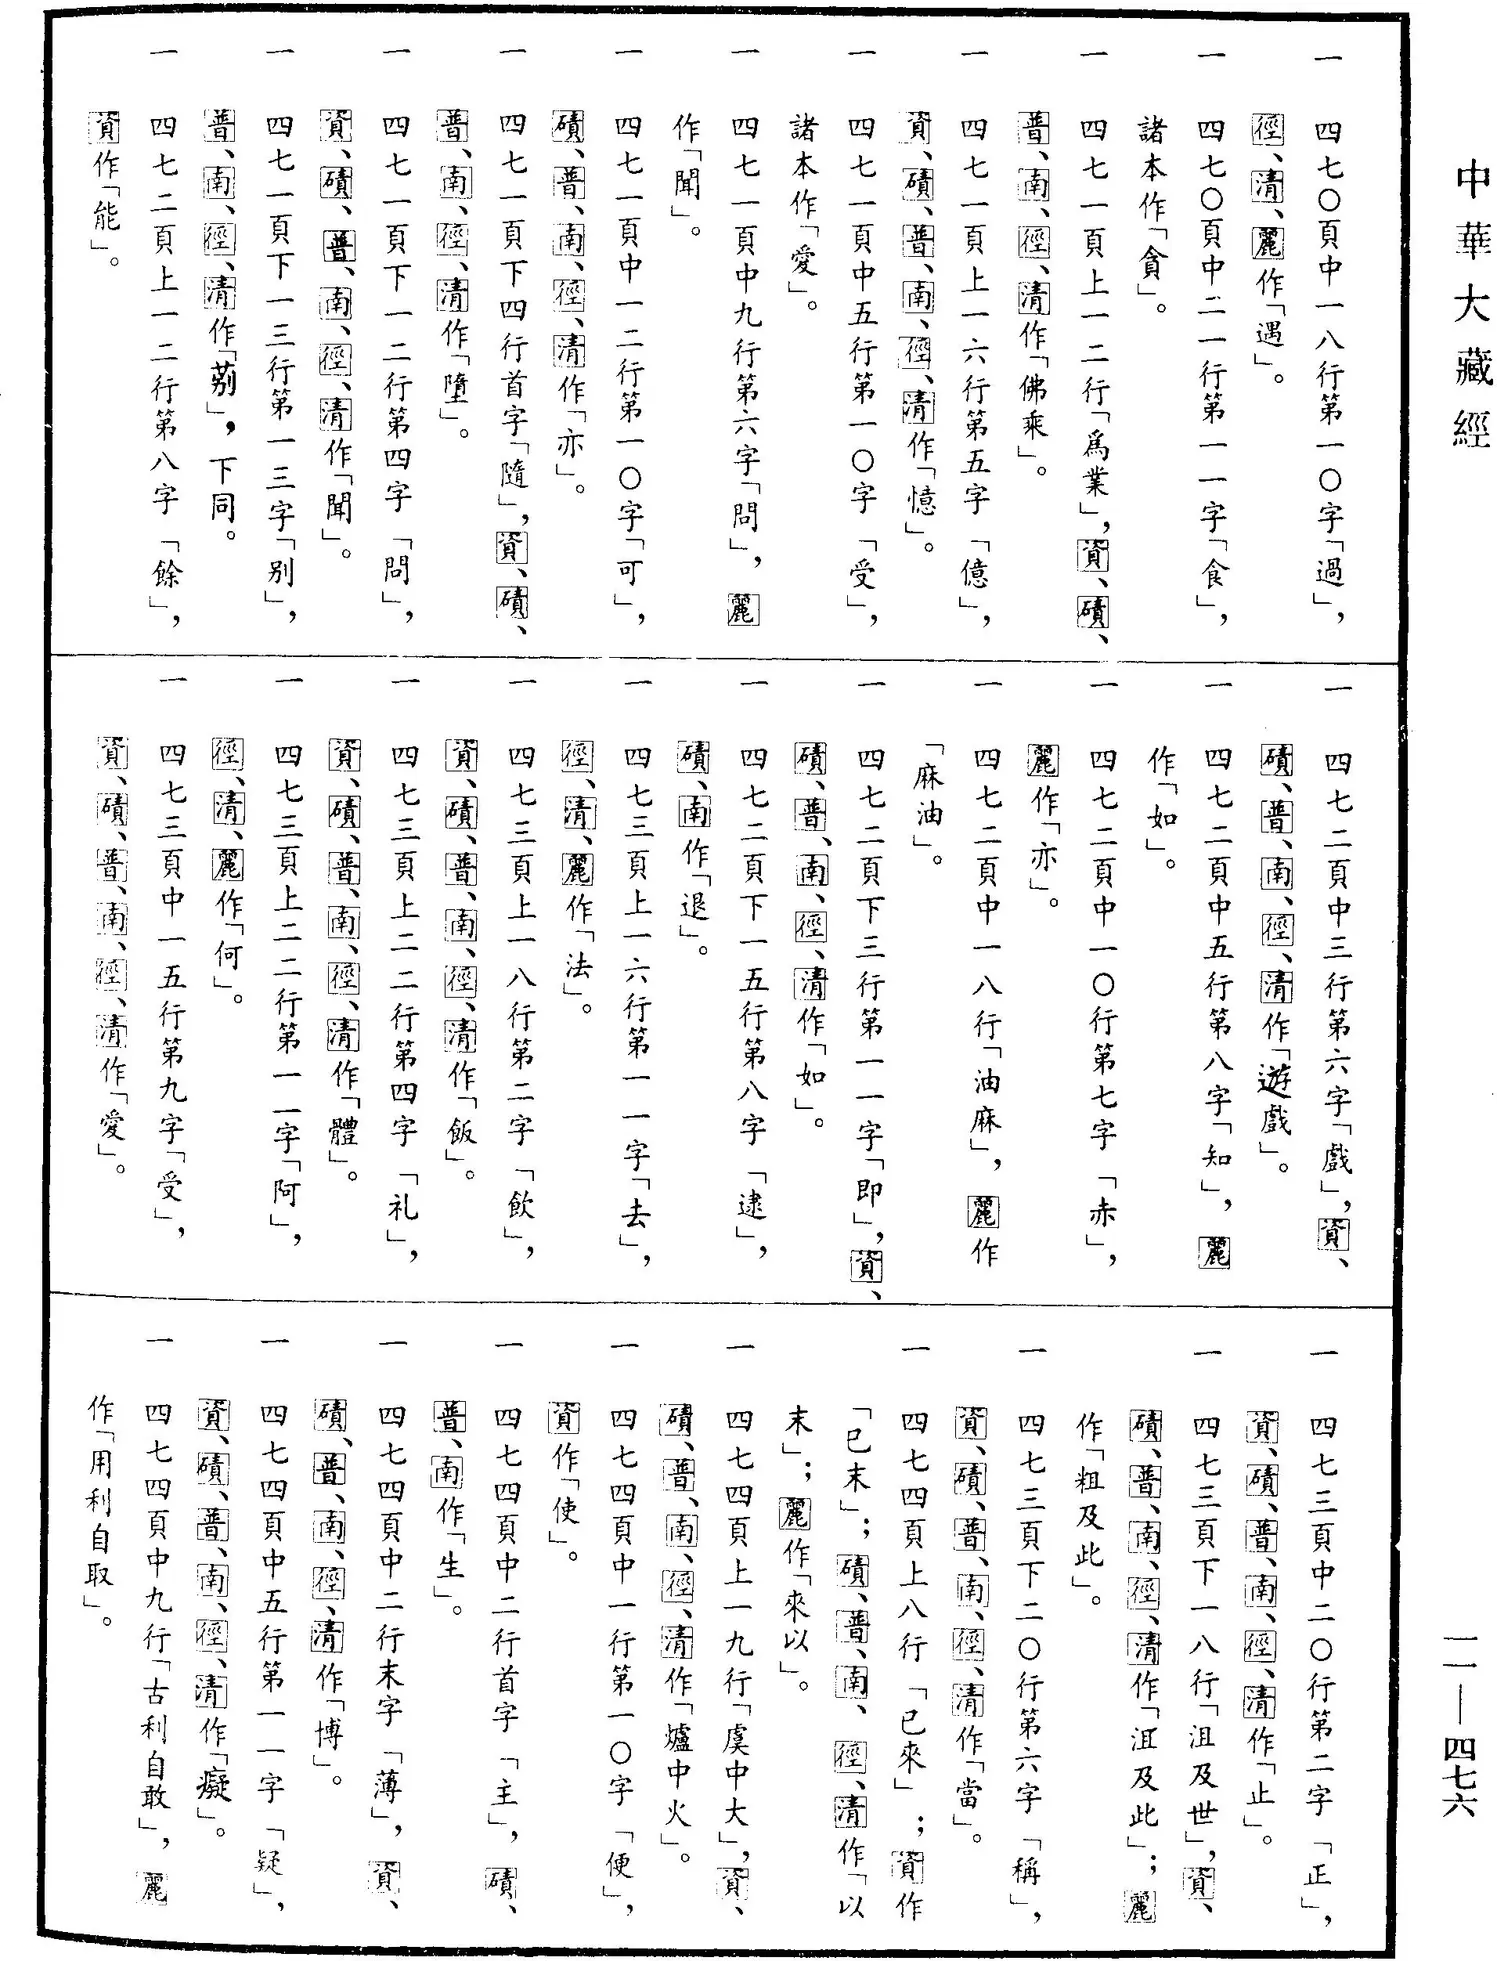 中華大藏經
一一—四七六
一　四七〇頁中一八行第一〇字「過」，
徑、清、麗作「遇」。
一　四七〇頁中二一行第一一字「食」，
諸本作「貪」。
一　四七一頁上一二行「爲業」，資、磧、
普、南、徑、清作「佛乘」。
一　四七一頁上一六行第五字「億」，
資、磧、普、南、徑、清作「憶」。
一　四七一頁中五行第一〇字「受」，
諸本作「愛」。
一　四七一頁中九行第六字「問」，麗
作「聞」。
一　四七一頁中一二行第一〇字「可」，
磧、普、南、徑、清作「亦」。
一　四七一頁下四行首字「隨」，資、磧、
普、南、徑、清作「墮」。
一　四七一頁下一二行第四字「問」，
資、磧、普、南、徑、清作「聞」。
一　四七一頁下一三行第一三字「别」，
普、南、徑、清作「莂」，下同。
一　四七二頁上一二行第八字「餘」，
資作「能」。
一　四七二頁中三行第六字「戲」，資、
磧、普、南、徑、清作「遊戲」。
一　四七二頁中五行第八字「知」，麗
作「如」。
一　四七二頁中一〇行第七字「赤」，
麗作「亦」。
一　四七二頁中一八行「油麻」，麗作
「麻油」。
一　四七二頁下三行第一一字「即」，資、
磧、普、南、徑、清作「如」。
一　四七二頁下一五行第八字「逮」，
磧、南作「退」。
一　四七三頁上一六行第一一字「去」，
徑、清、麗作「法」。
一　四七三頁上一八行第二字「飲」，
資、磧、普、南、徑、清作「飯」。
一　四七三頁上二二行第四字「礼」，
資、磧、普、南、徑、清作「體」。
一　四七三頁上二二行第一一字「阿」，
徑、清、麗作「何」。
一　四七三頁中一五行第九字「受」，
資、磧、普、南、徑、清作「愛」。
一　四七三頁中二〇行第二字「正」，
資、磧、普、南、徑、清作「止」。
一　四七三頁下一八行「沮及世」，資、
磧、普、南、徑、清作「沮及此」；麗
作「粗及此」。
一　四七三頁下二〇行第六字「稱」，
資、磧、普、南、徑、清作「當」。
一　四七四頁上八行「已來」；資作
「已末」；磧、普、南、徑、清作「以
末」；麗作「來以」。
一　四七四頁上一九行「虞中大」，資、
磧、普、南、徑、清作「爐中火」。
一　四七四頁中一行第一〇字「便」，
資作「使」。
一　四七四頁中二行首字「主」，磧、
普、南作「生」。
一　四七四頁中二行末字「薄」，資、
磧、普、南、徑、清作「博」。
一　四七四頁中五行第一一字「疑」，
資、磧、普、南、徑、清作「癡」。
一　四七四頁中九行「古利自敢」，麗
作「用利自取」。